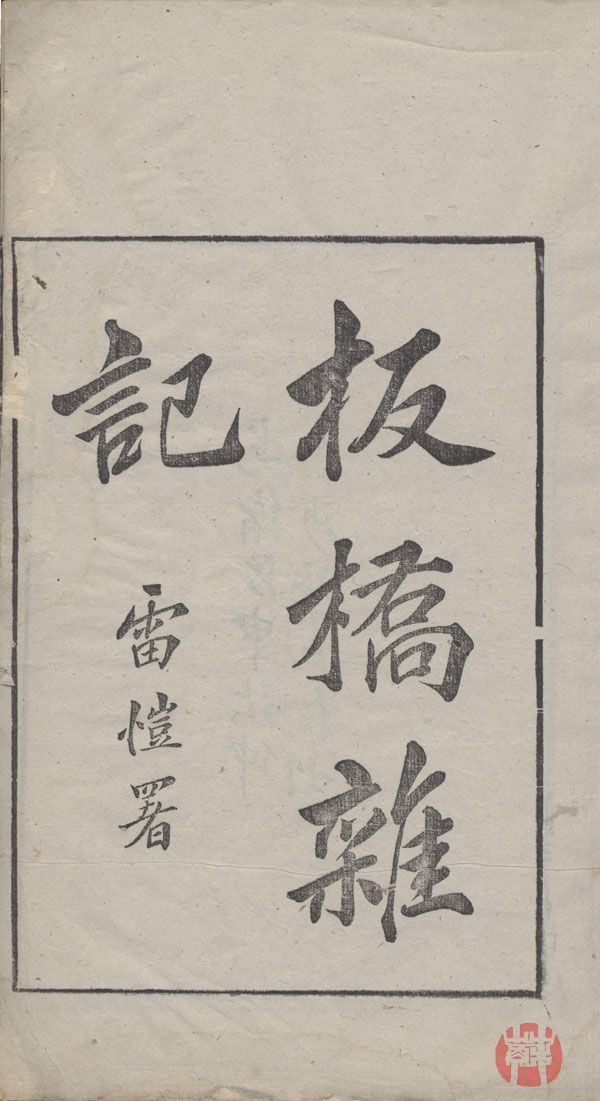 板橋雜
記
雷愷署